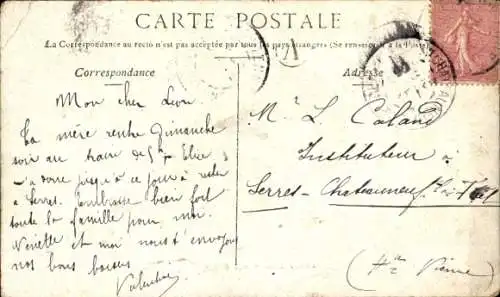 CARTE POSTALE
La Correspondance au recto n'est pas acceptée par tous les pays étrangers (Se renseigner à la Poste)
Correspondance
Adresse
Mon cher Léon
Ta mère rentre Dimanche
soir au train de
a donc jusqu'à ce jour à rester
à Serres. Embrasse bien fort
toute la famille pour moi.
Nénette et moi nous t'envoyons
nos bons baisers
Valentine
Mr L. Caland
Instituteur à
Serres-Chateauneuf
(Hte Vienne)